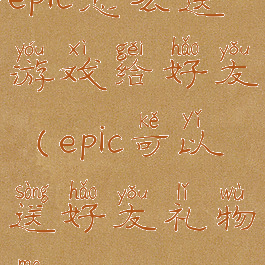 epic怎么送
yóu xì gěi hǎo yǒu
游戏给好友
kě yǐ
(epic可以
sòng hǎo yǒu lǐ wù
送好友礼物